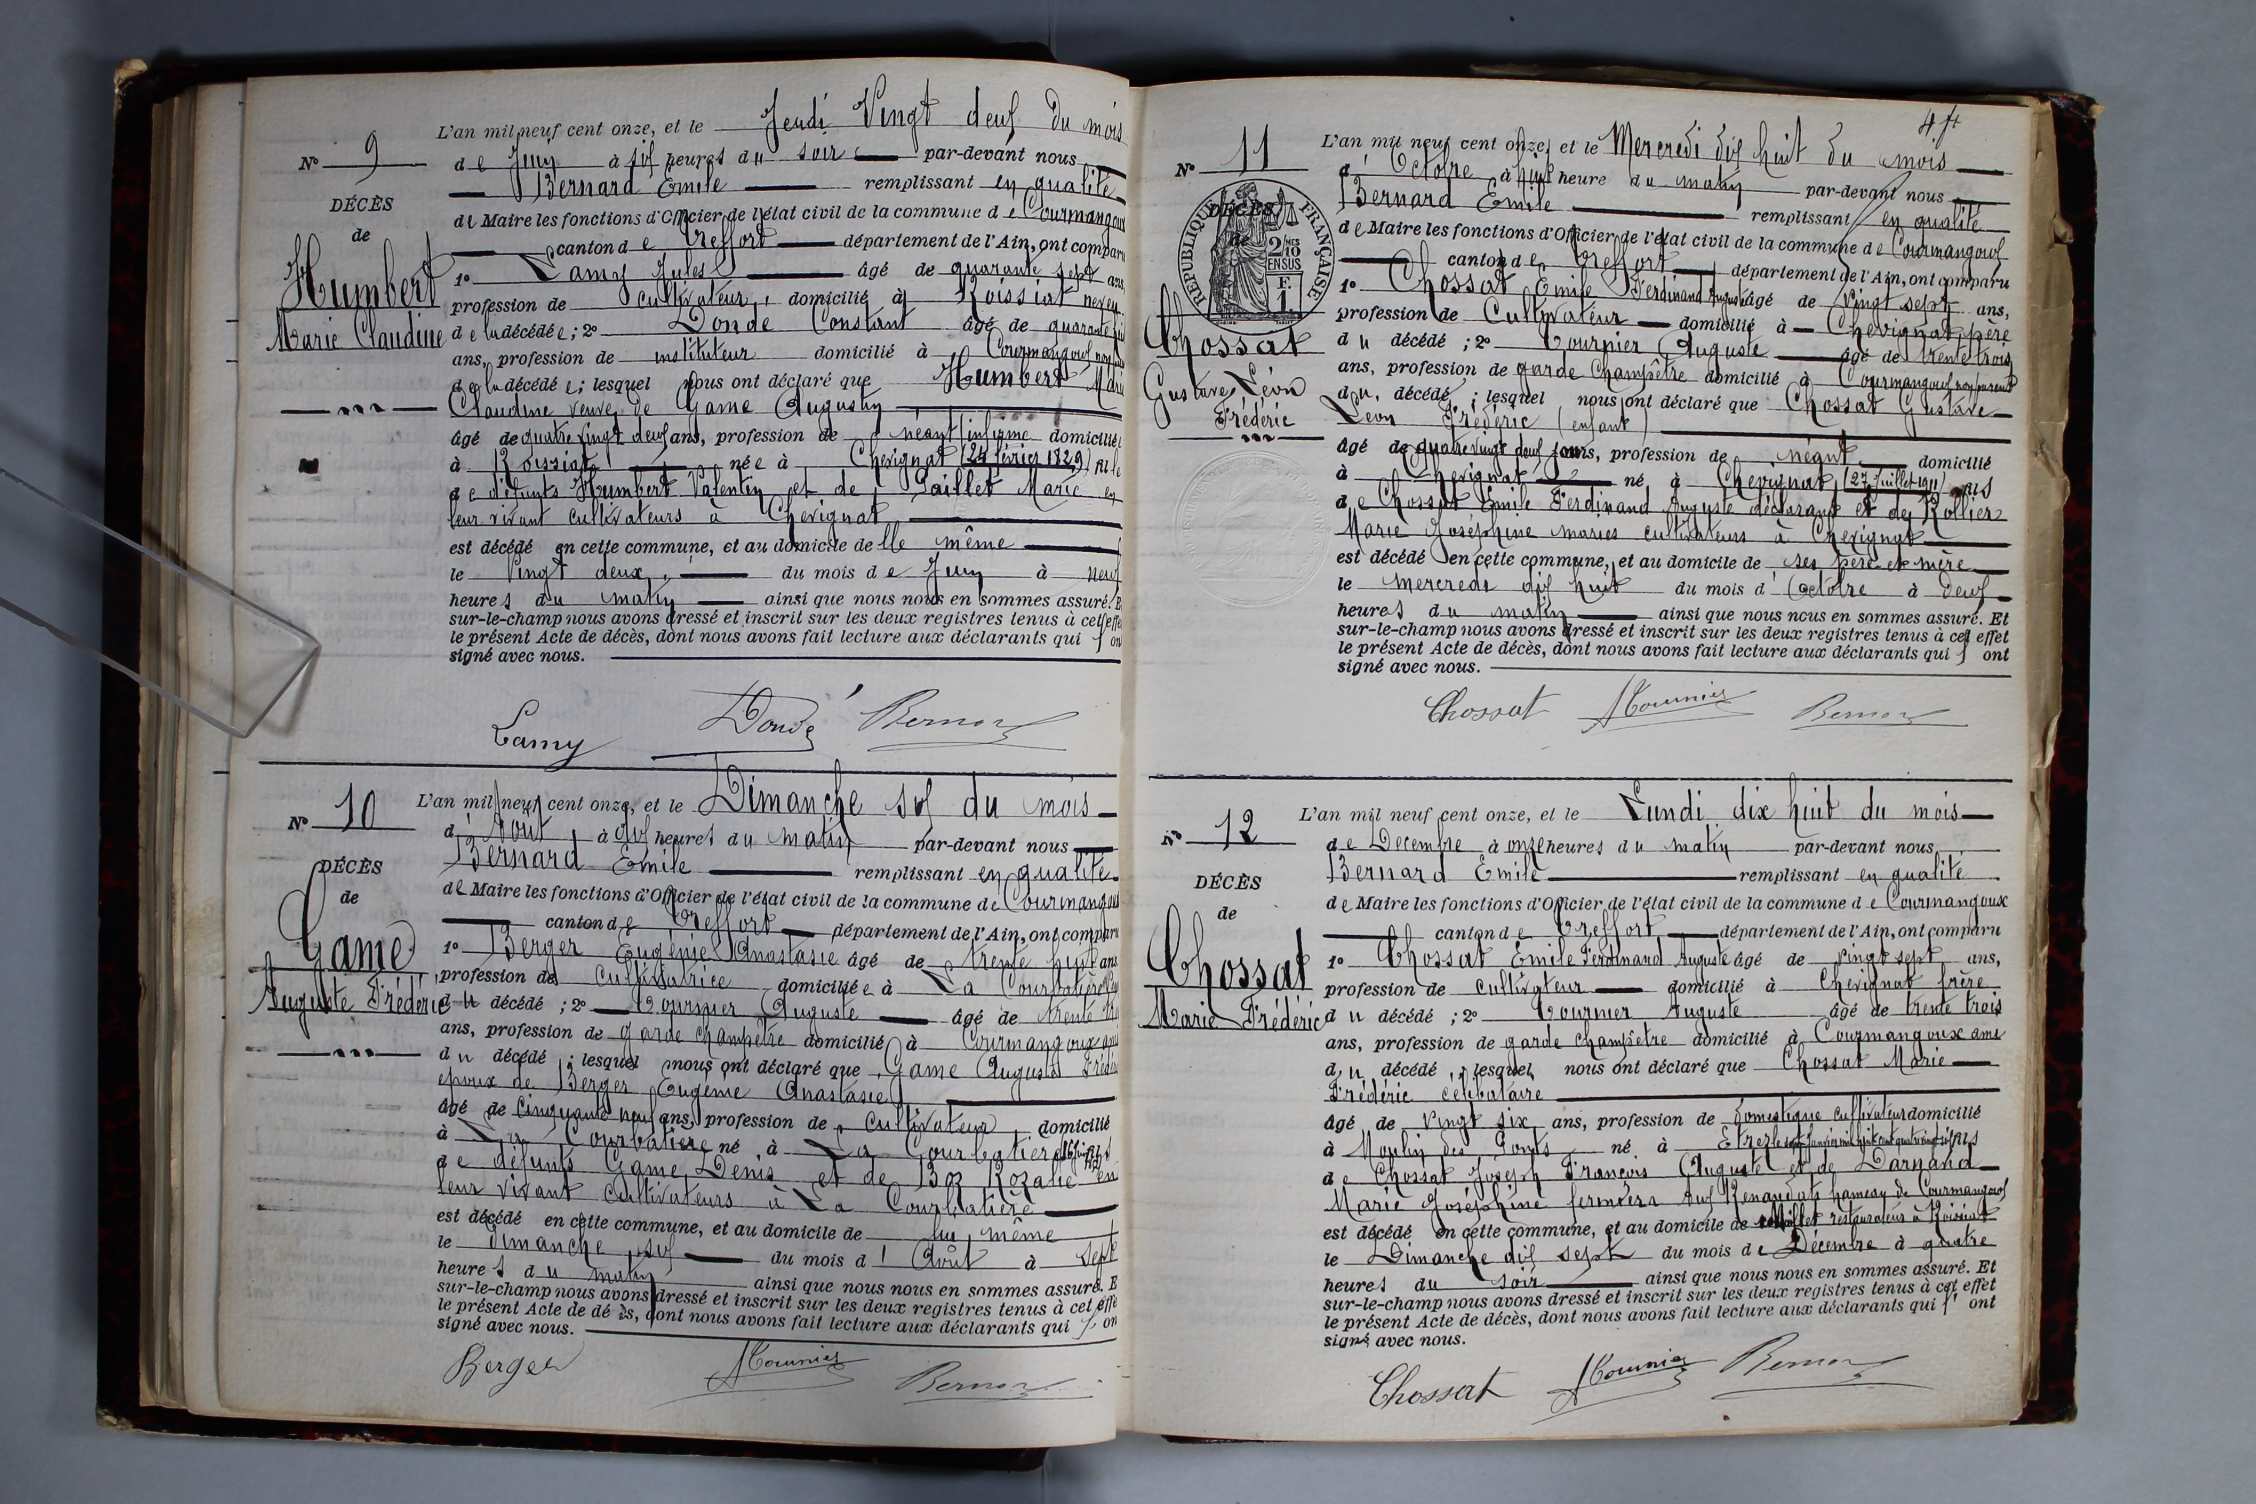 Nº 9
DÉCÈS
de
Humbert
Marie Claudine
L'an mil neuf cent onze, et le Jeudi Vingt deux du mois
de Juin à six heures du soir par-devant nous
Bernard Emile remplissant en qualité
de Maire les fonctions d'Officier de l'état civil de la commune de Courmangoux
canton de Treffort département de l'Ain, ont comparu
1º Lamy Jules âgé de quarante sept ans,
profession de cultivateur, domicilié à Roissiat neveu
de la décédée; 2º Donde Constant âgé de quarante
ans, profession de instituteur domicilié à Courmangoux
de la décédée; lesquel nous ont déclaré que Humbert Marie
Claudine veuve de Game Augustin
âgé de quatre vingt deux ans, profession de néant infirme domicilié
à Roissiat née à Chevignat (24 février 1829) fille
de défunts Humbert Valentin et de Paillet Marie en
leur vivant cultivateurs à Chevignat
est décédé en cette commune, et au domicile de lle même
le Vingt deux du mois de Juin à neuf
heures du matin ainsi que nous nous en sommes assuré. Et
sur-le-champ nous avons dressé et inscrit sur les deux registres tenus à cet effet
le présent Acte de décès, dont nous avons fait lecture aux déclarants qui ont
signé avec nous.
Lamy Donde Bernard
Nº 10
DÉCÈS
de
Game
Auguste Frédéric
L'an mil neuf cent onze, et le Dimanche six du mois
d'Août à dix heures du matin par-devant nous
Bernard Emile remplissant en qualité
de Maire les fonctions d'Officier de l'état civil de la commune de Courmangoux
canton de Treffort département de l'Ain, ont comparu
1º Berger Eugénie Anastasie âgé de trente huit ans
profession de cultivatrice domiciliée à La Courbatière
du décédé; 2º Tournier Auguste âgé de trente
ans, profession de garde champêtre domicilié à Courmangoux ami
du décédé; lesquel nous ont déclaré que Game Auguste Frédéric
époux de Berger Eugénie Anastasie
âgé de cinquante neuf ans, profession de cultivateur domicilié
à La Courbatière né à La Courbatière
de défunts Game Denis et de Boz Rozalie en
leur vivant cultivateurs à La Courbatière
est décédé en cette commune, et au domicile de lui même
le dimanche six du mois d'Août à sept
heures du matin ainsi que nous nous en sommes assuré. Et
sur-le-champ nous avons dressé et inscrit sur les deux registres tenus à cet effet
le présent Acte de décès, dont nous avons fait lecture aux déclarants qui ont
signé avec nous.
Berger Tournier Bernard
Nº 11
DÉCÈS
de
RÉPUBLIQUE FRANÇAISE
2/10 EN SUS
F. 1
Chossat
Gustave Léon
Frédéric
L'an mil neuf cent onze, et le Mercredi dix huit du mois
d'Octobre à huit heure du matin par-devant nous
Bernard Emile remplissant en qualité
de Maire les fonctions d'Officier de l'état civil de la commune de Courmangoux
canton de Treffort département de l'Ain, ont comparu
1º Chossat Emile Ferdinand Auguste âgé de vingt sept ans,
profession de Cultivateur domicilié à Chevignat père
du décédé; 2º Tournier Auguste âgé de trente trois
ans, profession de garde champêtre domicilié à Courmangoux non parent
du décédé; lesquel nous ont déclaré que Chossat Gustave
Léon Frédéric (enfant)
âgé de quatre vingt deux jours, profession de néant domicilié
à Chevignat né à Chevignat (27 juillet 1911) fils
de Chossat Emile Ferdinand Auguste déclarant et de Rollier
Marie Joséphine mariés cultivateurs à Chevignat
est décédé en cette commune, et au domicile de ses père et mère
le mercredi dix huit du mois d'Octobre à deux
heures du matin ainsi que nous nous en sommes assuré. Et
sur-le-champ nous avons dressé et inscrit sur les deux registres tenus à cet effet
le présent Acte de décès, dont nous avons fait lecture aux déclarants qui ont
signé avec nous.
Chossat Tournier Bernard
Nº 12
DÉCÈS
de
Chossat
Marie Frédéric
L'an mil neuf cent onze, et le Lundi dix huit du mois
de Décembre à onze heures du matin par-devant nous
Bernard Emile remplissant en qualité
de Maire les fonctions d'Officier de l'état civil de la commune de Courmangoux
canton de Treffort département de l'Ain, ont comparu
1º Chossat Emile Ferdinand Auguste âgé de vingt sept ans,
profession de cultivateur domicilié à Chevignat frère
du décédé; 2º Tournier Auguste âgé de trente trois
ans, profession de garde champêtre domicilié à Courmangoux ami
du décédé; lesquel nous ont déclaré que Chossat Marie
Frédéric célibataire
âgé de vingt six ans, profession de domestique cultivateur domicilié
à Moulin des Ponts né à Etrez fils
de Chossat Joseph François Auguste et de Darnand
Marie Joséphine fermiers aux Renaudats hameau de Courmangoux
est décédé en cette commune, et au domicile de restaurateur à Roissiat
le Dimanche dix sept du mois de Décembre à quatre
heures du soir ainsi que nous nous en sommes assuré. Et
sur-le-champ nous avons dressé et inscrit sur les deux registres tenus à cet effet
le présent Acte de décès, dont nous avons fait lecture aux déclarants qui ont
signé avec nous.
Chossat Tournier Bernard